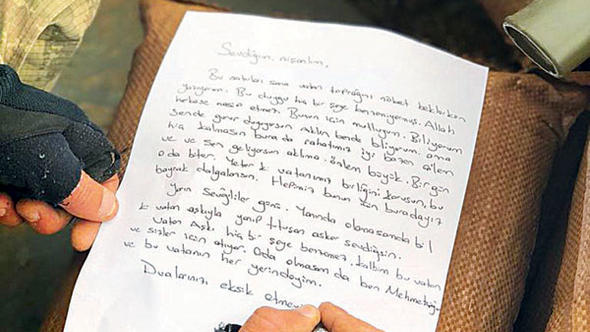 Sevdiğim, nişanlım,
Bu satırları sana vatan toprağını nöbet beklerken
yazıyorum. Bu duygu hiç bir şeye benzemiyormuş. Allah
herkese nasip etmez. Bunun için mutluyum. Biliyorum
sende gurur duyuyorsun Aklın bende biliyorum ama
hiç kalmasın burada rahatımız iyi bazen ailem
ve ve sen geliyorsun aklıma. önlem büyük. Bir gün
o da biter. Yeter ki vatanımın birliğini korusun, bu
bayrak dalgalansın. Hepimiz bunun için buradayız
Yarın sevgililer günü. Yanında olamasamda bil
ki vatan aşkıyla yanıp tutuşan asker sevdiğinim.
Vatan Aşkı hiç bir şeye benzemez. kalbim bu vatan
ve sizler için atıyor. Orda olmasam da ben Mehmetciğim
ve bu vatanın her yerindeyim.
Dualarınızı eksik